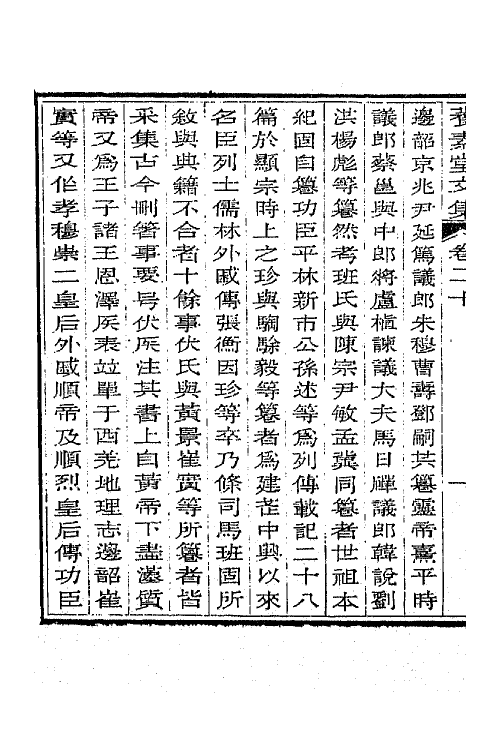 養素堂文集 卷二十 一
邊韶京兆尹延篤議郎朱穆曹壽鄧嗣共篹靈帝熹平時
議郎蔡邕與中郎將盧植諫議大夫馬日磾議郎韓說劉
洪楊彪等篹然考班氏與陳宗尹敏孟異同篹者世祖本
紀固自篹功臣平林新市公孫述等為列傳載記二十八
篇於顯宗時上之珍與騊駼毅等篹者為建武中興以來
名臣列士儒林外戚傳張衡因珍等卒乃條司馬班固所
敘與典籍不合者十餘事伏氏與黃景崔寔等所篹者皆
采集古今刪著事要号伏侯注其書上自黃帝下盡漢質
帝又為王子諸王恩澤侯表竝單于西羌地理志邊韶崔
寔等又作孝穆崇二皇后外戚順帝及順烈皇后傳功臣